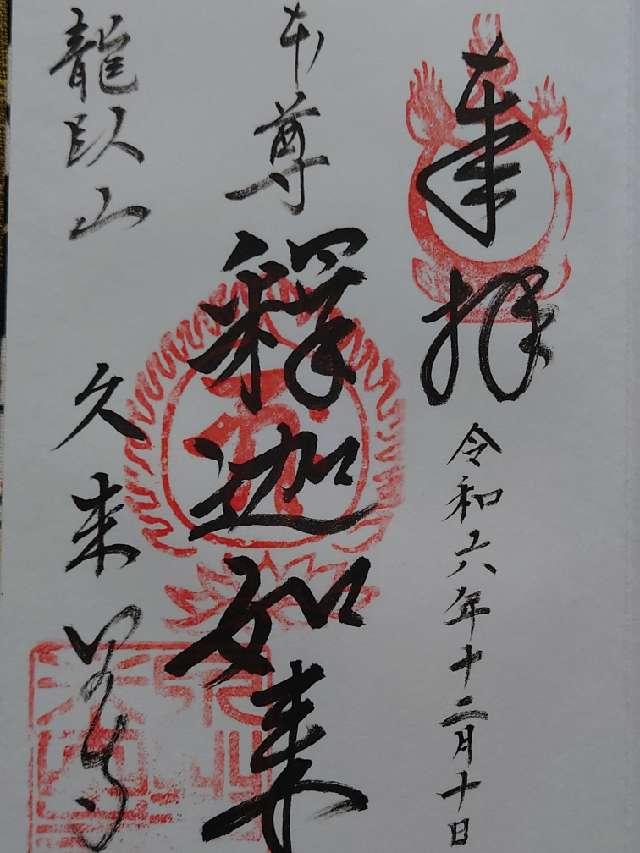 奉拝
令和六年十二月十日
本尊
釋迦如来
龍臥山
久来